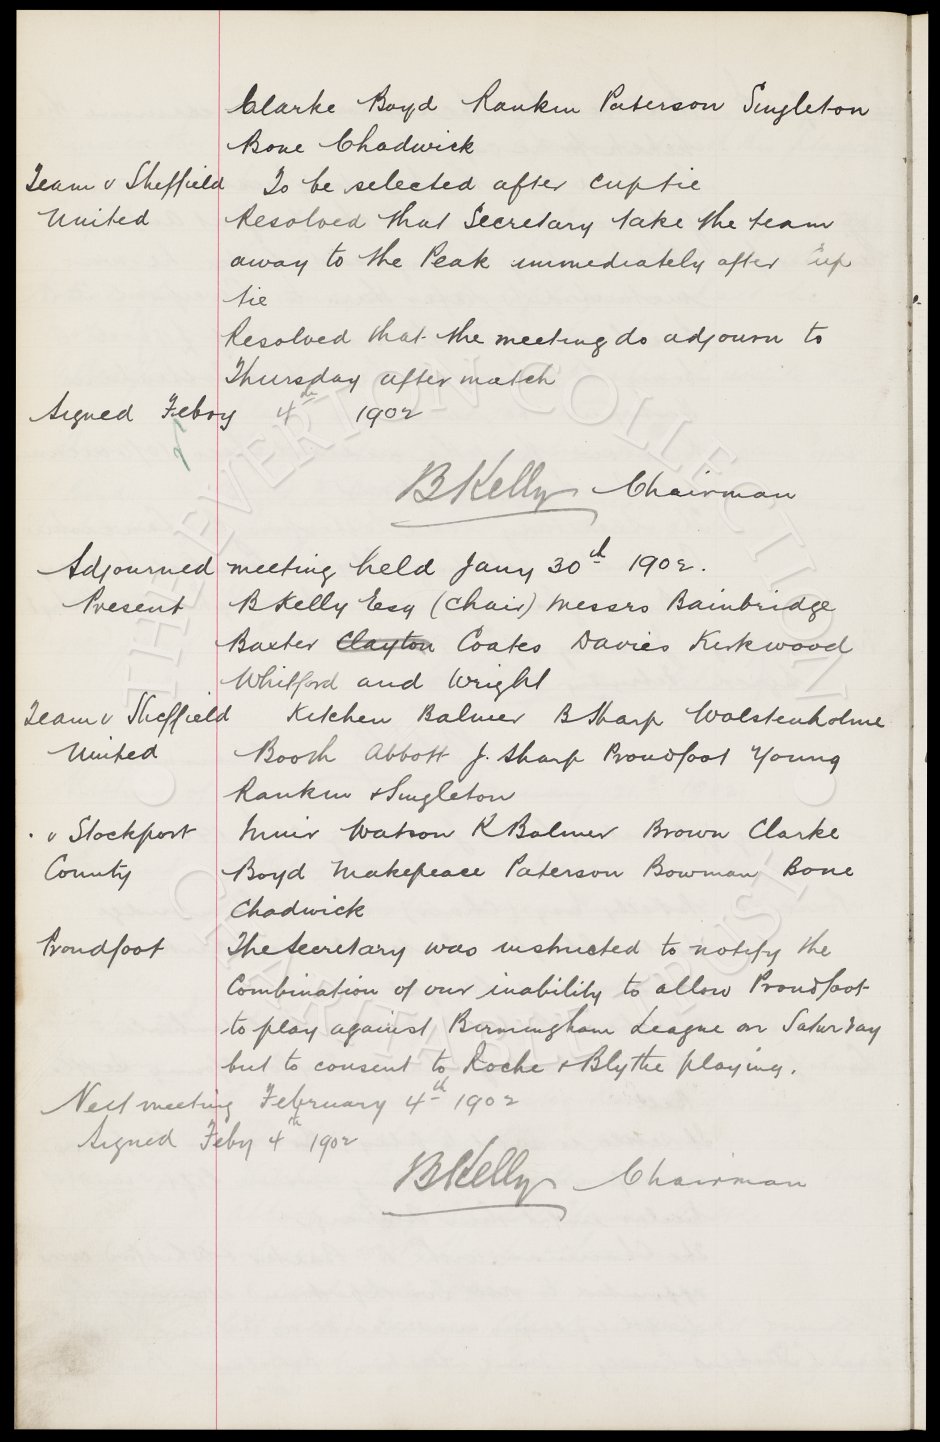 Clarke Boyd Rankin Paterson Singleton
Bone Chadwick
Team v Sheffield To be selected after cuptie
United Resolved that Secretary take the team
away to the Peak immediately after cup
tie
Resolved that the meeting do adjourn to
Thursday after match
Signed Febry 4th 1902
BKelly Chairman
Adjourned meeting held Jany 30th 1902.
Present B Kelly Esq (chair) Messrs Bainbridge
Baxter Clayton Coates Davies Kirkwood
Whitford and Wright
Team v Sheffield Kitchen Balmer B Sharp Wolstenholme
United Booth Abbott J. Sharp Proudfoot Young
Rankin & Singleton
. v Stockport Muir Watson R Balmer Brown Clarke
County Boyd Makepeace Paterson Bowman Bone
Chadwick
Proudfoot The Secretary was instructed to notify the
Combination of our inability to allow Proudfoot
to play against Birmingham League on Saturday
but to consent to Roche & Blythe playing.
Next meeting February 4th 1902
Signed Feby 4th 1902
BKelly Chairman
THE EVERTON COLLECTION